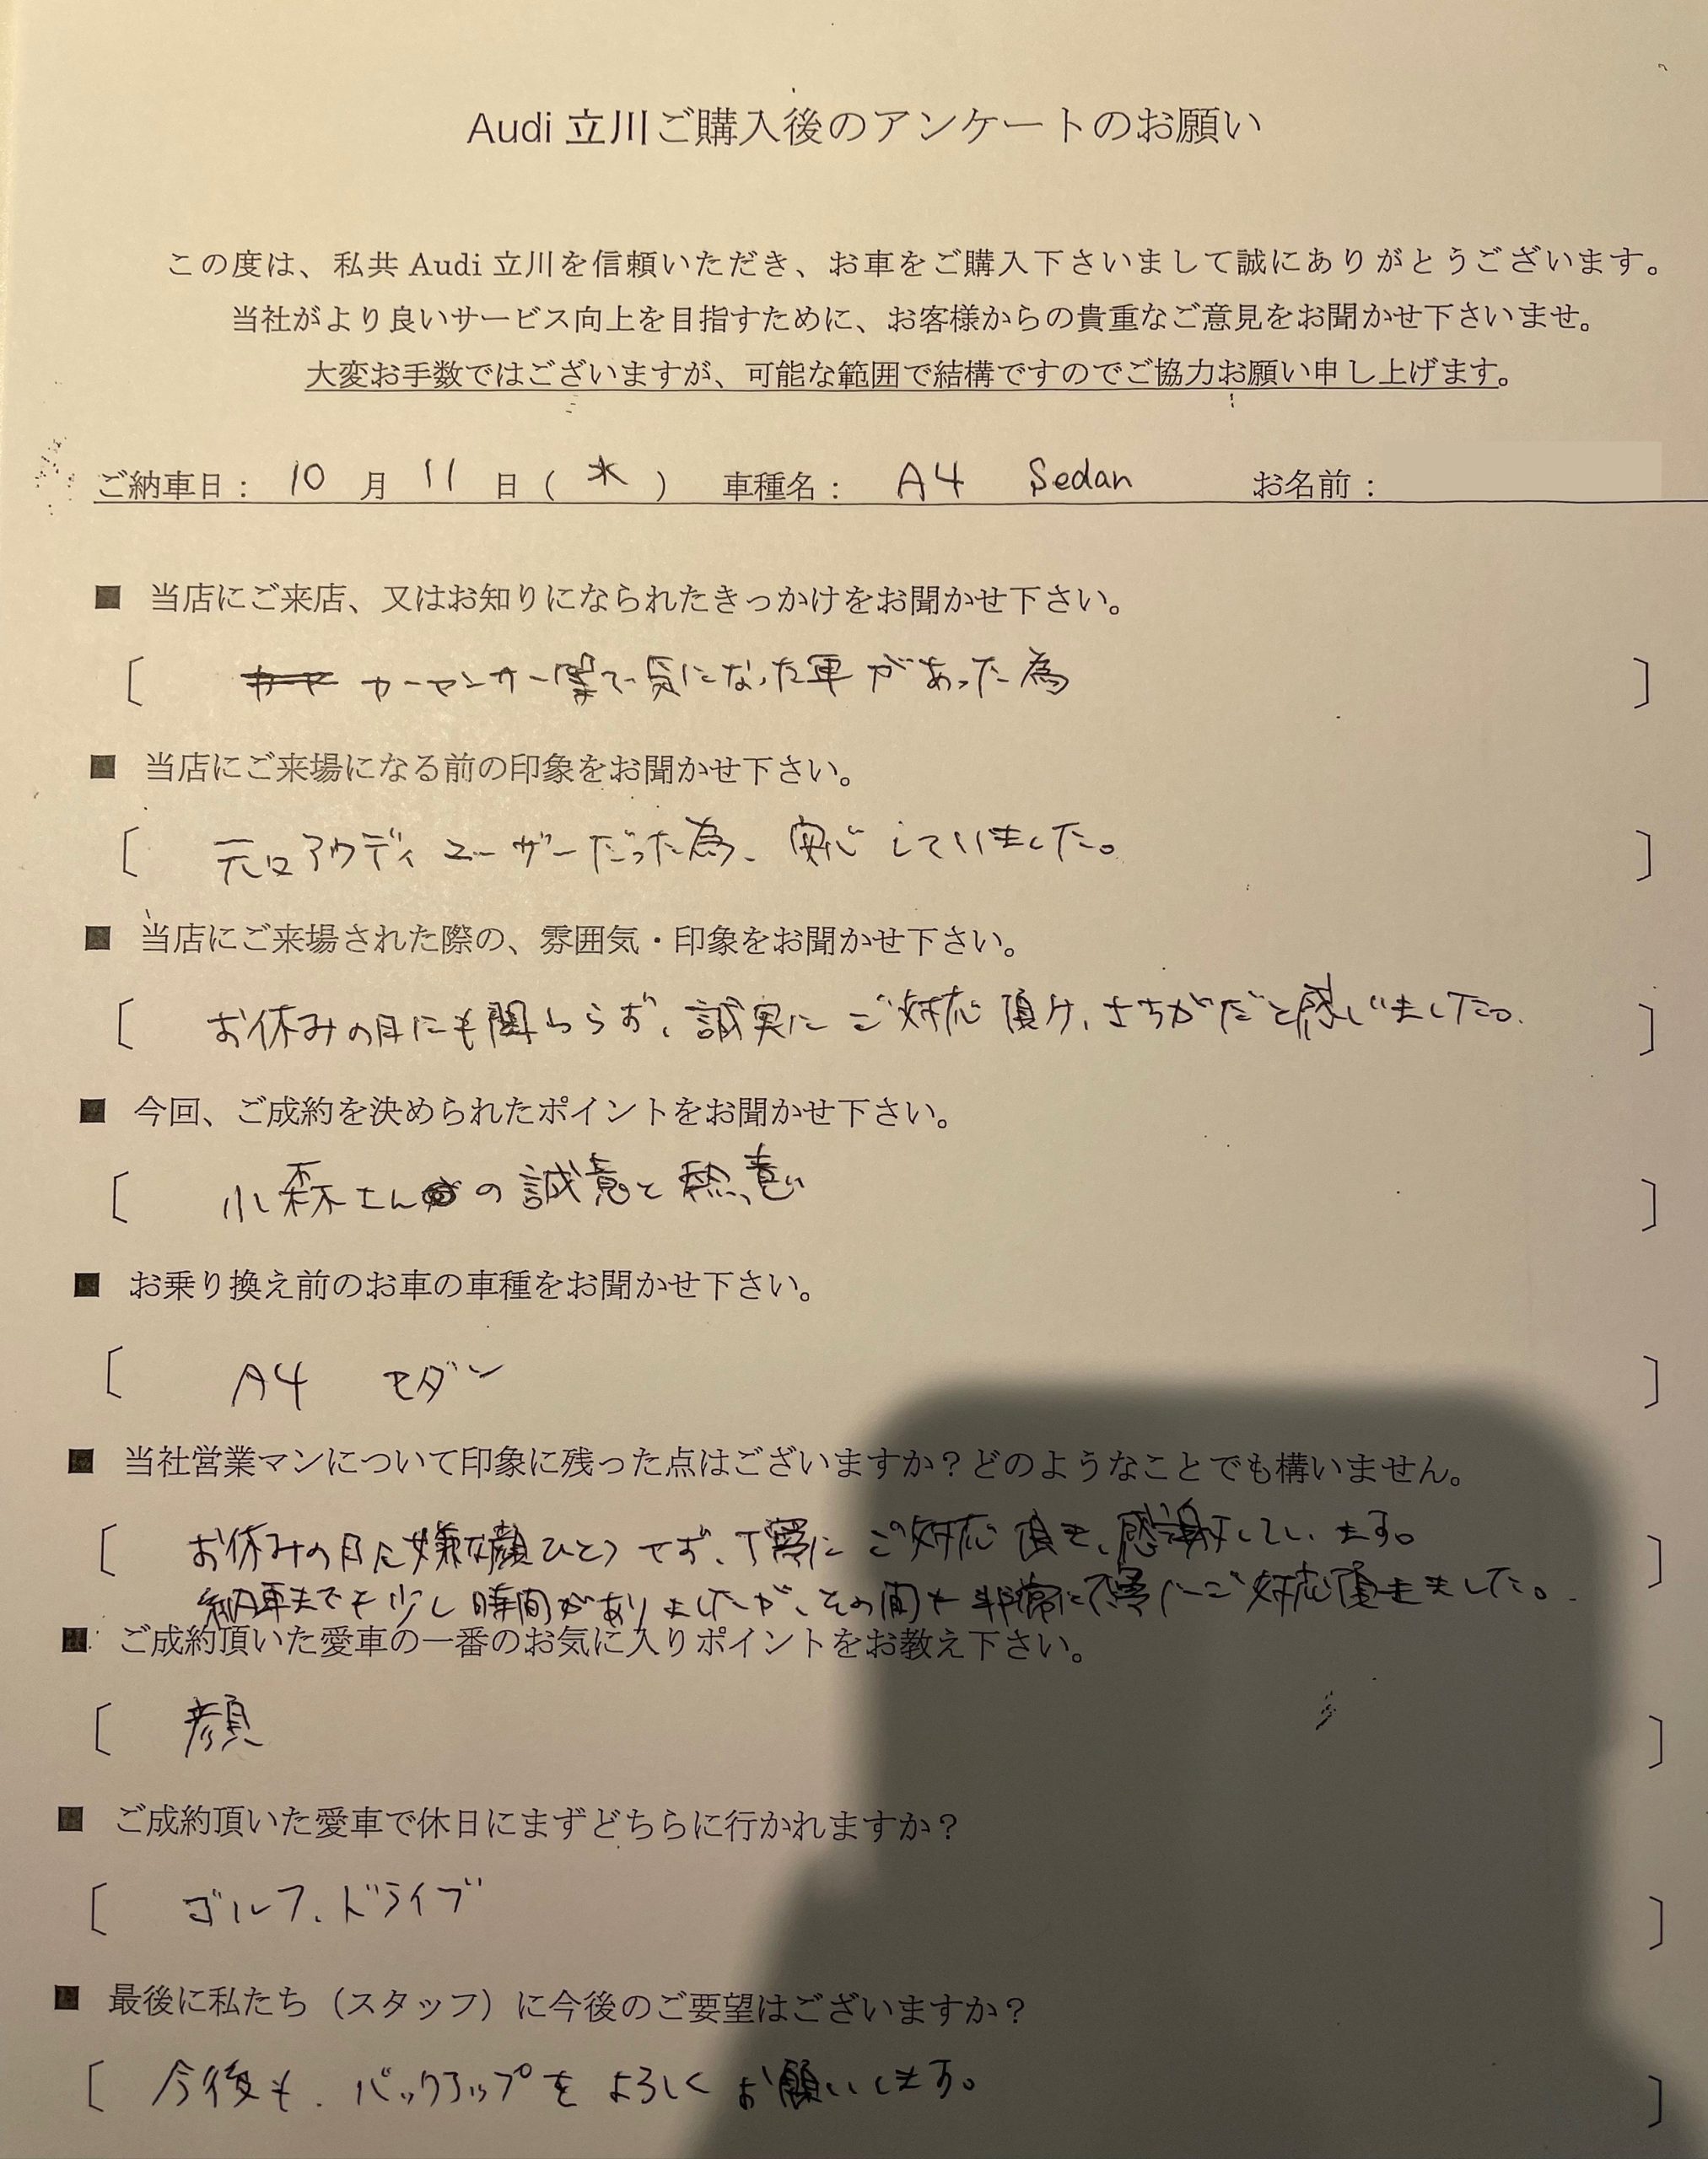 Audi 立川ご購入後のアンケートのお願い
この度は、私共 Audi 立川を信頼いただき、お車をご購入下さいまして誠にありがとうございます。
当社がより良いサービス向上を目指すために、お客様からの貴重なご意見をお聞かせ下さいませ。
大変お手数ではございますが、可能な範囲で結構ですのでご協力お願い申し上げます。
ご納車日： 10 月 11 日（ 水 ） 車種名： A4 Sedan お名前：
■ 当店にご来店、又はお知りになられたきっかけをお聞かせ下さい。
〔 カーセンサー で気になった車があった為 〕
■ 当店にご来場になる前の印象をお聞かせ下さい。
〔 元々アウディユーザーだった為、安心していました。 〕
■ 当店にご来場された際の、雰囲気・印象をお聞かせ下さい。
〔 お休みの日にも関わらず、誠実にご対応頂け、さすがだと感じました。 〕
■ 今回、ご成約を決められたポイントをお聞かせ下さい。
〔 小森さんの誠意と熱意 〕
■ お乗り換え前のお車の車種をお聞かせ下さい。
〔 A4 セダン 〕
■ 当社営業マンについて印象に残った点はございますか？どのようなことでも構いません。
〔 お休みの日に嫌な顔ひとつせず、丁寧にご対応頂き、感謝しています。 〕
納車まで少し時間がありましたが、その間も非常に丁寧にご対応頂きました。
■ ご成約頂いた愛車の一番のお気に入りポイントをお教え下さい。
〔 顔 〕
■ ご成約頂いた愛車で休日にまずどちらに行かれますか？
〔 ゴルフ、ドライブ 〕
■ 最後に私たち（スタッフ）に今後のご要望はございますか？
〔 今後も、バックアップをよろしくお願いします。 〕